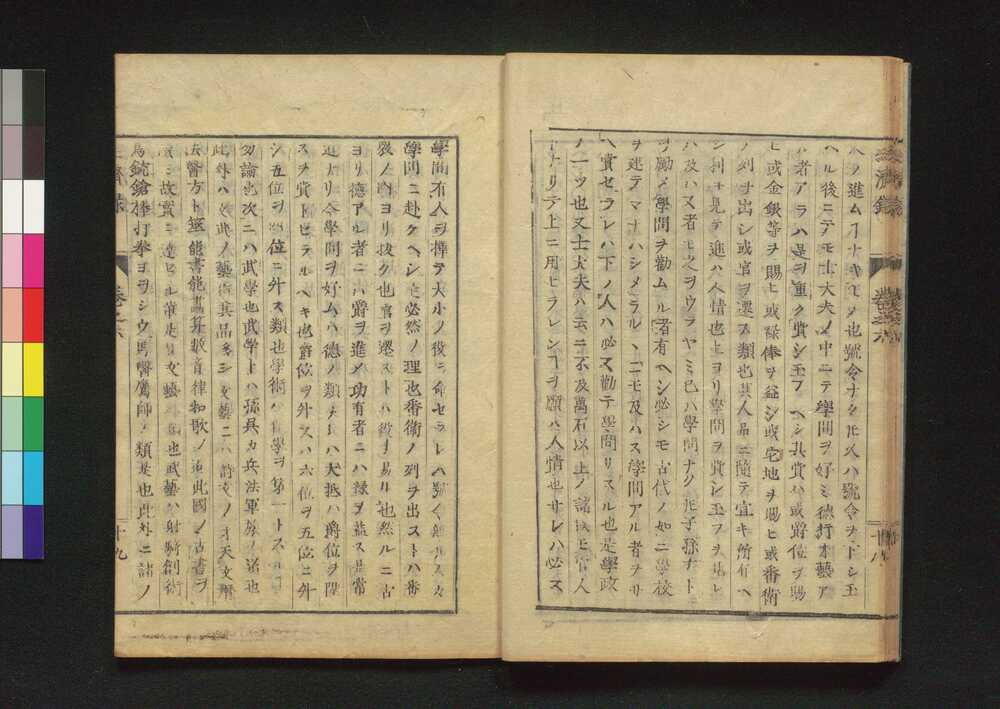 ノ進ムヿナキモノ也號令ナクトモ又ハ號令ヲ下シ玉
ヘル後ニテモ士大夫ノ中ニテ學問ヲ好ミ德行才藝ア
ル者アラハ是ヲ重ク賞シ玉フヘシ其賞ハ或爵位ヲ賜
ヒ或金銀等ヲ賜ヒ或祿俸ヲ益シ或宅地ヲ賜ヒ或番衛
ノ列ヲ出シ或官ヲ遷ス類也其人品ニ隨テ宜キ所有ヘ
シ利ヲ見テ進ハ人情也上ヨリ學問ヲ賞シ玉フヲ見レ
ハ及ハヌ者モ之ヲウラヤミ己ハ學問ナク トモ子孫ナト
ヲ勵メ學問ヲ勸ムル者有ヘシ必シモ古代ノ如ニ學校
ヲ建テマナハシメラルヽニモ及ハス學問アル者ヲサ
ヘ賞セラレハ下ノ人ハ必又勸テ學問スル也是學政
ノ一ツ也又士大夫ハ云ニ不及萬石以上ノ諸侯モ官人
トナリテ上ニ用ヒラレンヿヲ願ハ人情也サレハ必ス
經濟錄
卷之六
十八
學問有人ヲ擇テ大小ノ役ニ命セラレハ號令無
學問ニ赴クヘシ是必然ノ理也番衛ノ列ヲ出ストハ番
衆ノ内ヨリ拔ク也官ヲ遷ストハ役ヲ易ル也然ルニ古
ヨリ德アル者ニハ爵ヲ進メ功有者ニハ祿ヲ益ス是常
道ナリ今學問ヲ好ムハ德ノ類ナレハ大抵ハ爵位ヲ陞
スヲ賞トセラルヘキ也爵位ヲ外スハ六位ヲ五位ニ外
シ五位ヲ四位ニ外ス類也學術ハ儒學ヲ第一トスルヿ
勿論也次ニハ武學也武學トハ孫吳カ兵法軍旅ノ諸也
此外ハ文武ノ藝術其品多シ文藝ニハ詩文ノ才天文曆
法醫方卜筮能書能畫算數音律和歌ノ道此國ノ古書ヲ
故實ニ達セル輩是皆文藝也武藝ハ射騎劍術
鳥銃鎗棒打拳ヨヲシウ馬醫鷹師ノ類是也此外ニ諸ノ
卷之六
十九